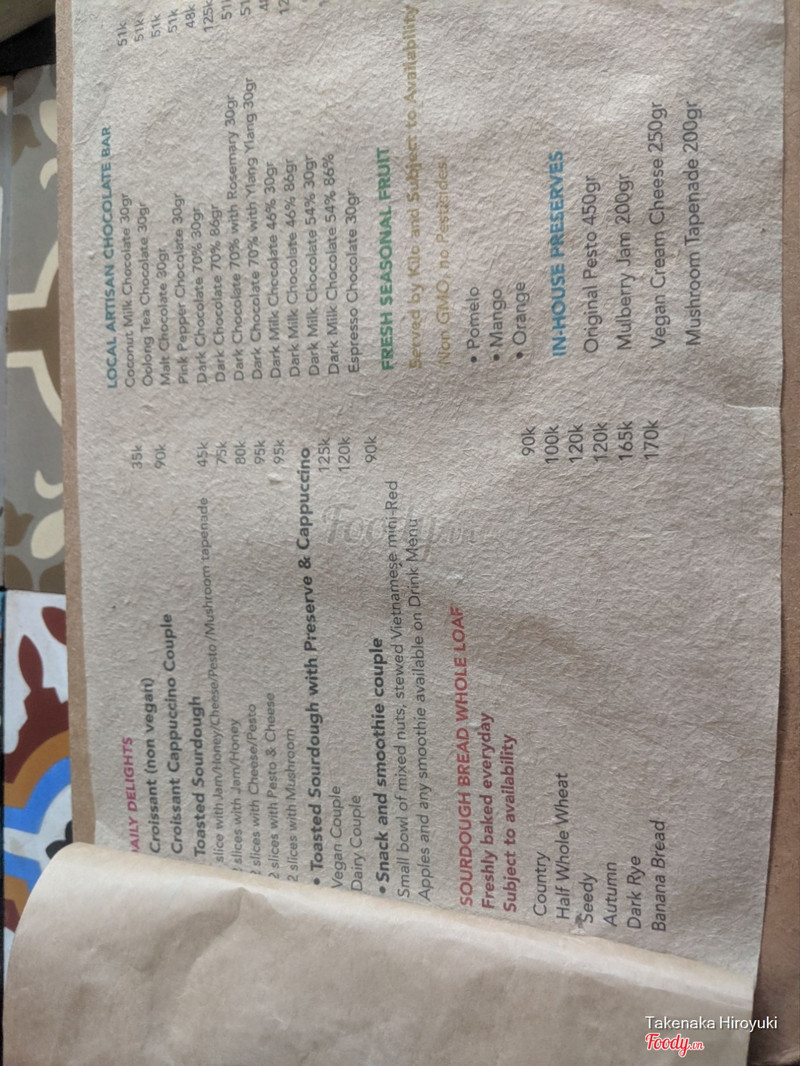 DAILY DELIGHTS
Croissant (non vegan) 35k
Croissant Cappuccino Couple 90k
Toasted Sourdough
slice with Jam/Honey/Cheese/Pesto/Mushroom tapenade 45k
2 slices with Jam/Honey 75k
2 slices with Cheese/Pesto 80k
2 slices with Pesto & Cheese 95k
2 slices with Mushroom 95k
• Toasted Sourdough with Preserve & Cappuccino
Vegan Couple 125k
Dairy Couple 120k
• Snack and smoothie couple 90k
Small bowl of mixed nuts, stewed Vietnamese mini-Red
Apples and any smoothie available on Drink Menu
SOURDOUGH BREAD WHOLE LOAF
Freshly baked everyday
Subject to availability
Country 90k
Half Whole Wheat 100k
Seedy 120k
Autumn 120k
Dark Rye 165k
Banana Bread 170k
LOCAL ARTISAN CHOCOLATE BAR
Coconut Milk Chocolate 30gr 51k
Oolong Tea Chocolate 30gr 51k
Malt Chocolate 30gr 51k
Pink Pepper Chocolate 30gr 51k
Dark Chocolate 70% 30gr 48k
Dark Chocolate 70% 86gr 125k
Dark Chocolate 70% with Rosemary 30gr
Dark Chocolate 70% with Ylang Ylang 30gr
Dark Milk Chocolate 46% 30gr
Dark Milk Chocolate 46% 86gr
Dark Milk Chocolate 54% 30gr
Dark Milk Chocolate 54% 86%
Espresso Chocolate 30gr
FRESH SEASONAL FRUIT
Served by Kilo and Subject to Availability
(Non GMO, no Pesticides)
• Pomelo
• Mango
• Orange
IN-HOUSE PRESERVES
Original Pesto 450gr
Mulberry Jam 200gr
Vegan Cream Cheese 250gr
Mushroom Tapenade 200gr
Foody.vn
Takenaka Hiroyuki
Foody.vn